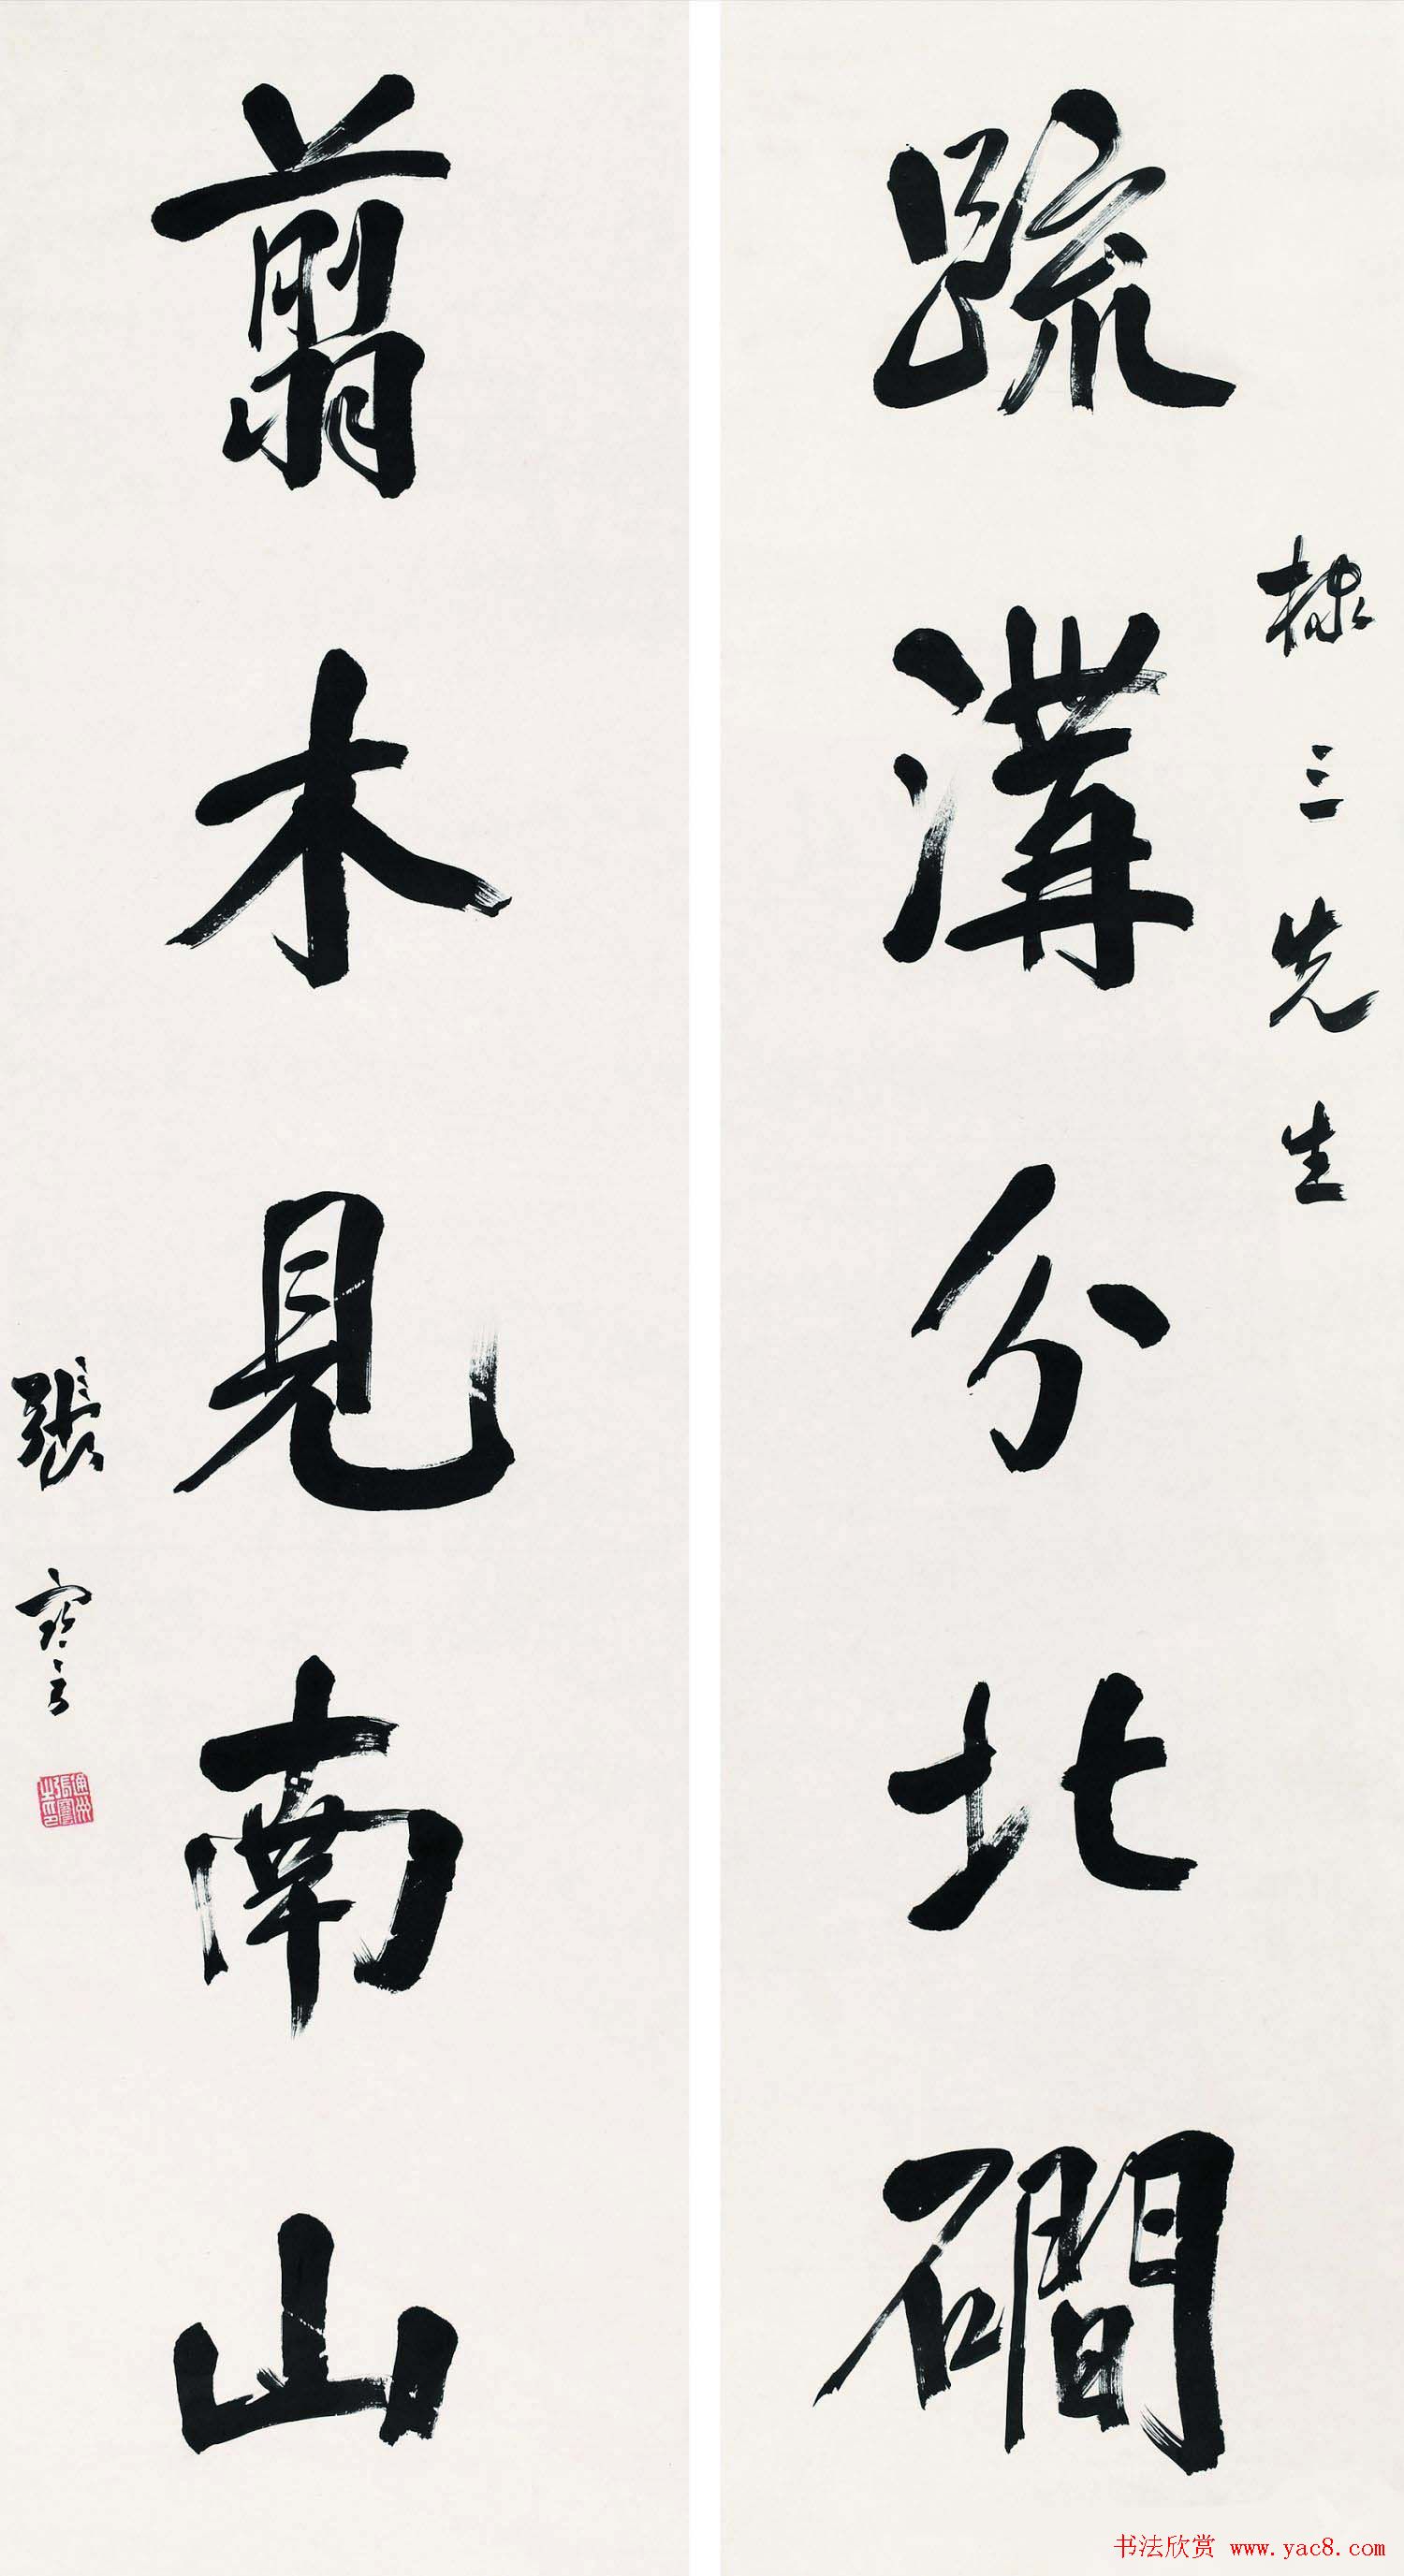 疏溝分北磵
棣三先生
翦木見南山
張謇
書法欣赏 www.yac8.com